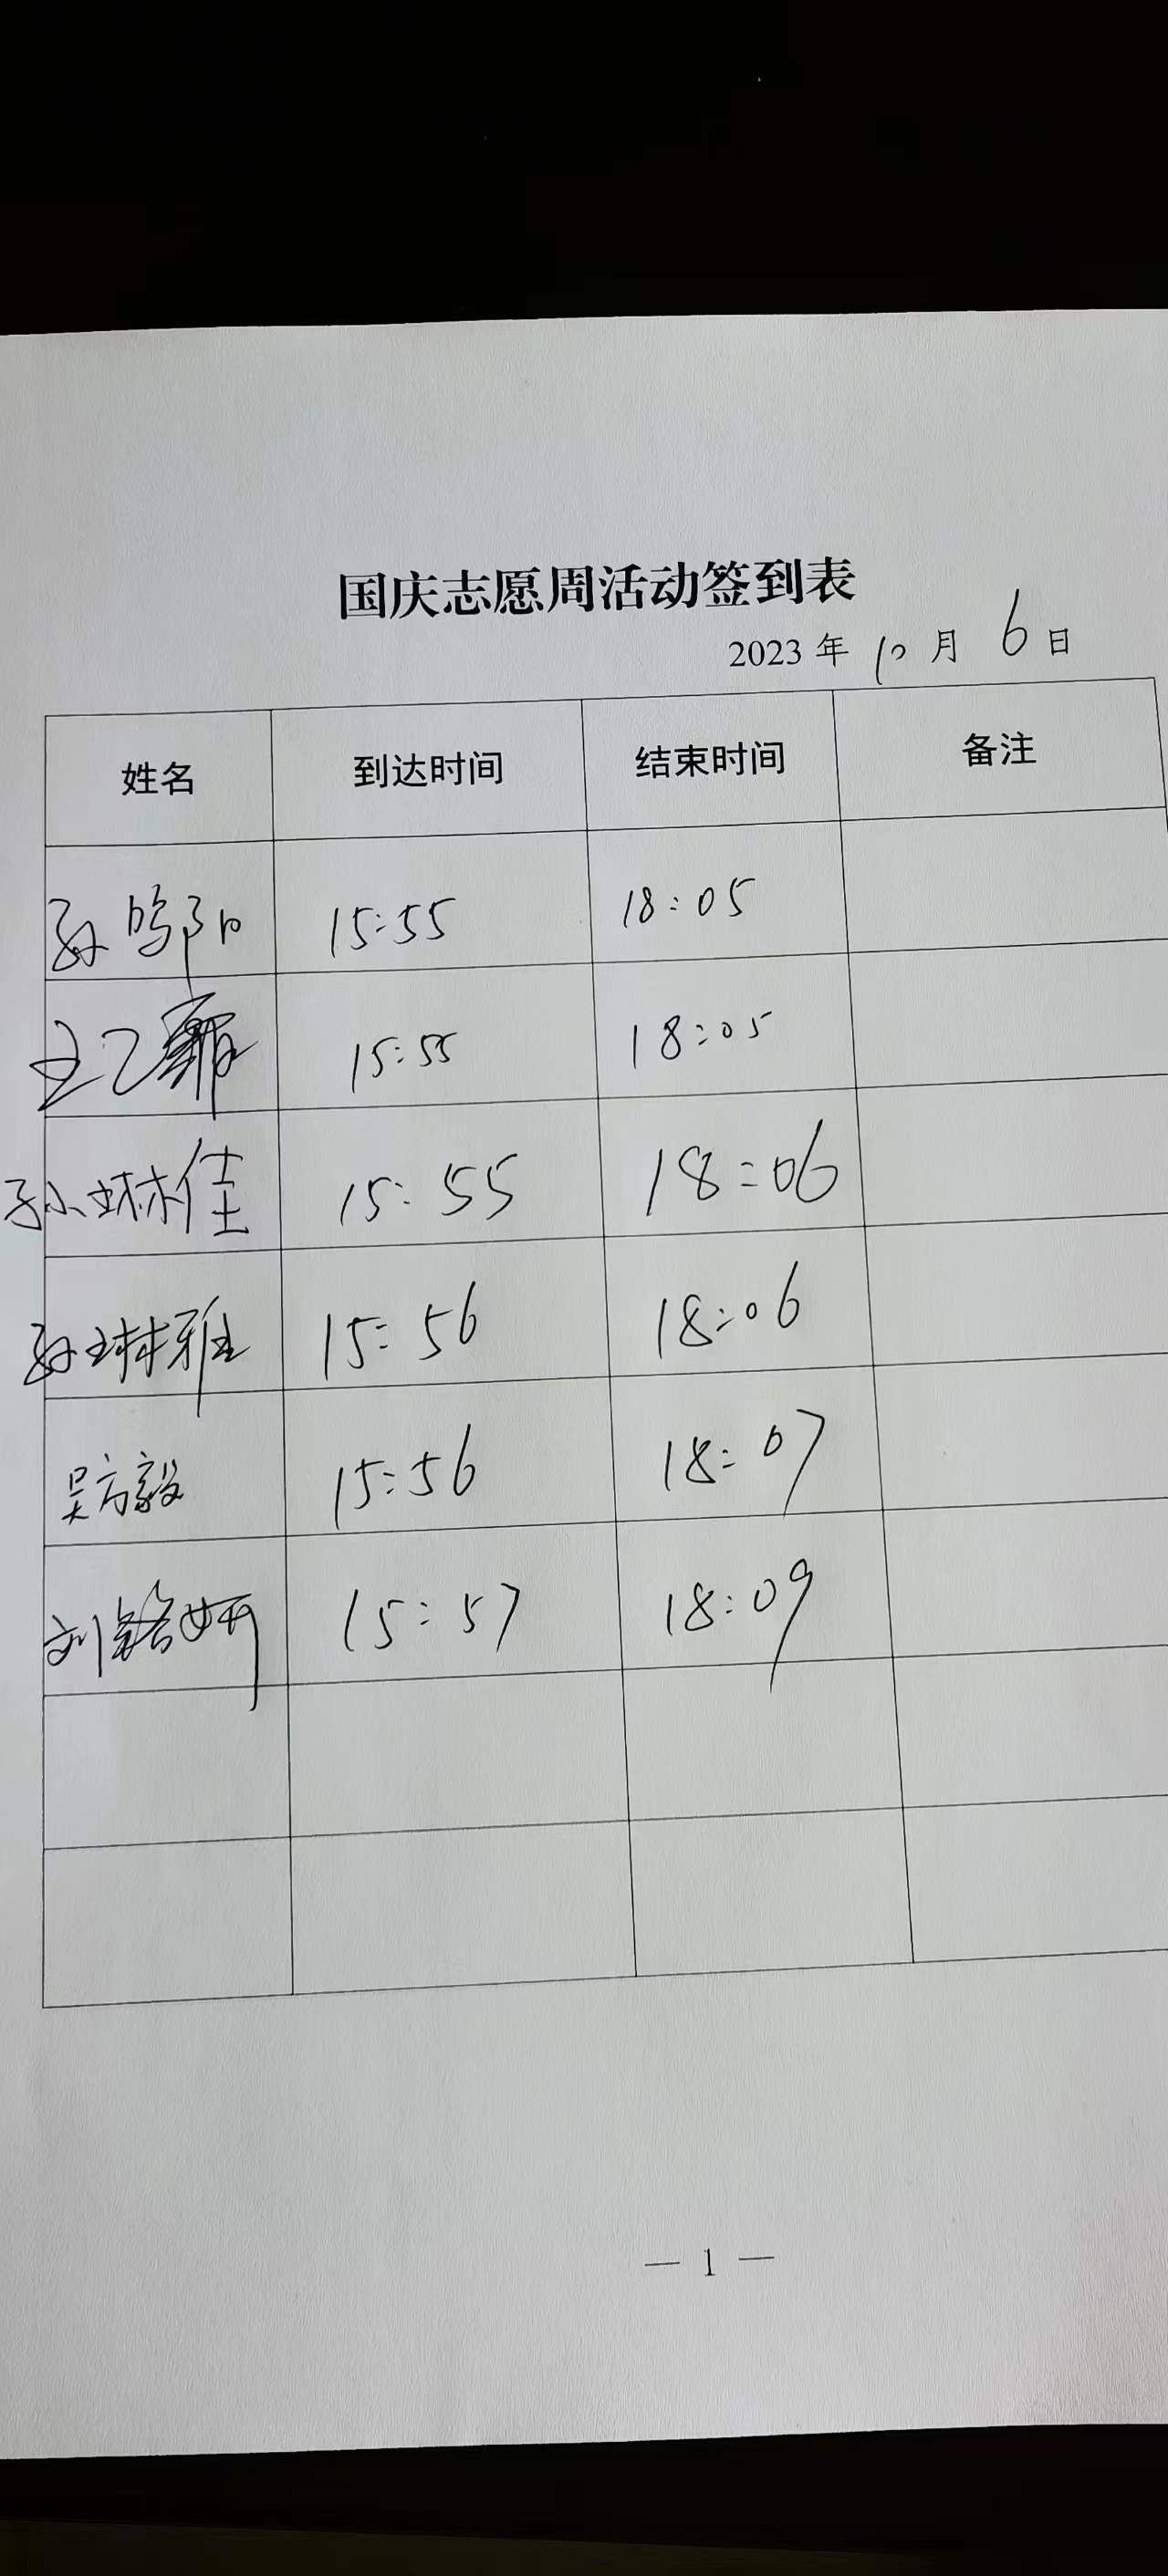 国庆志愿周活动签到表
2023 年 10 月 6 日
姓名 到达时间 结束时间 备注
孙鸣阳 15:55 18:05
王乙 15:55 18:05
孙琳佳 15:55 18:06
孙琳雅 15:56 18:06
吴方毅 15:56 18:07
刘铭妍 15:57 18:09
— 1 —